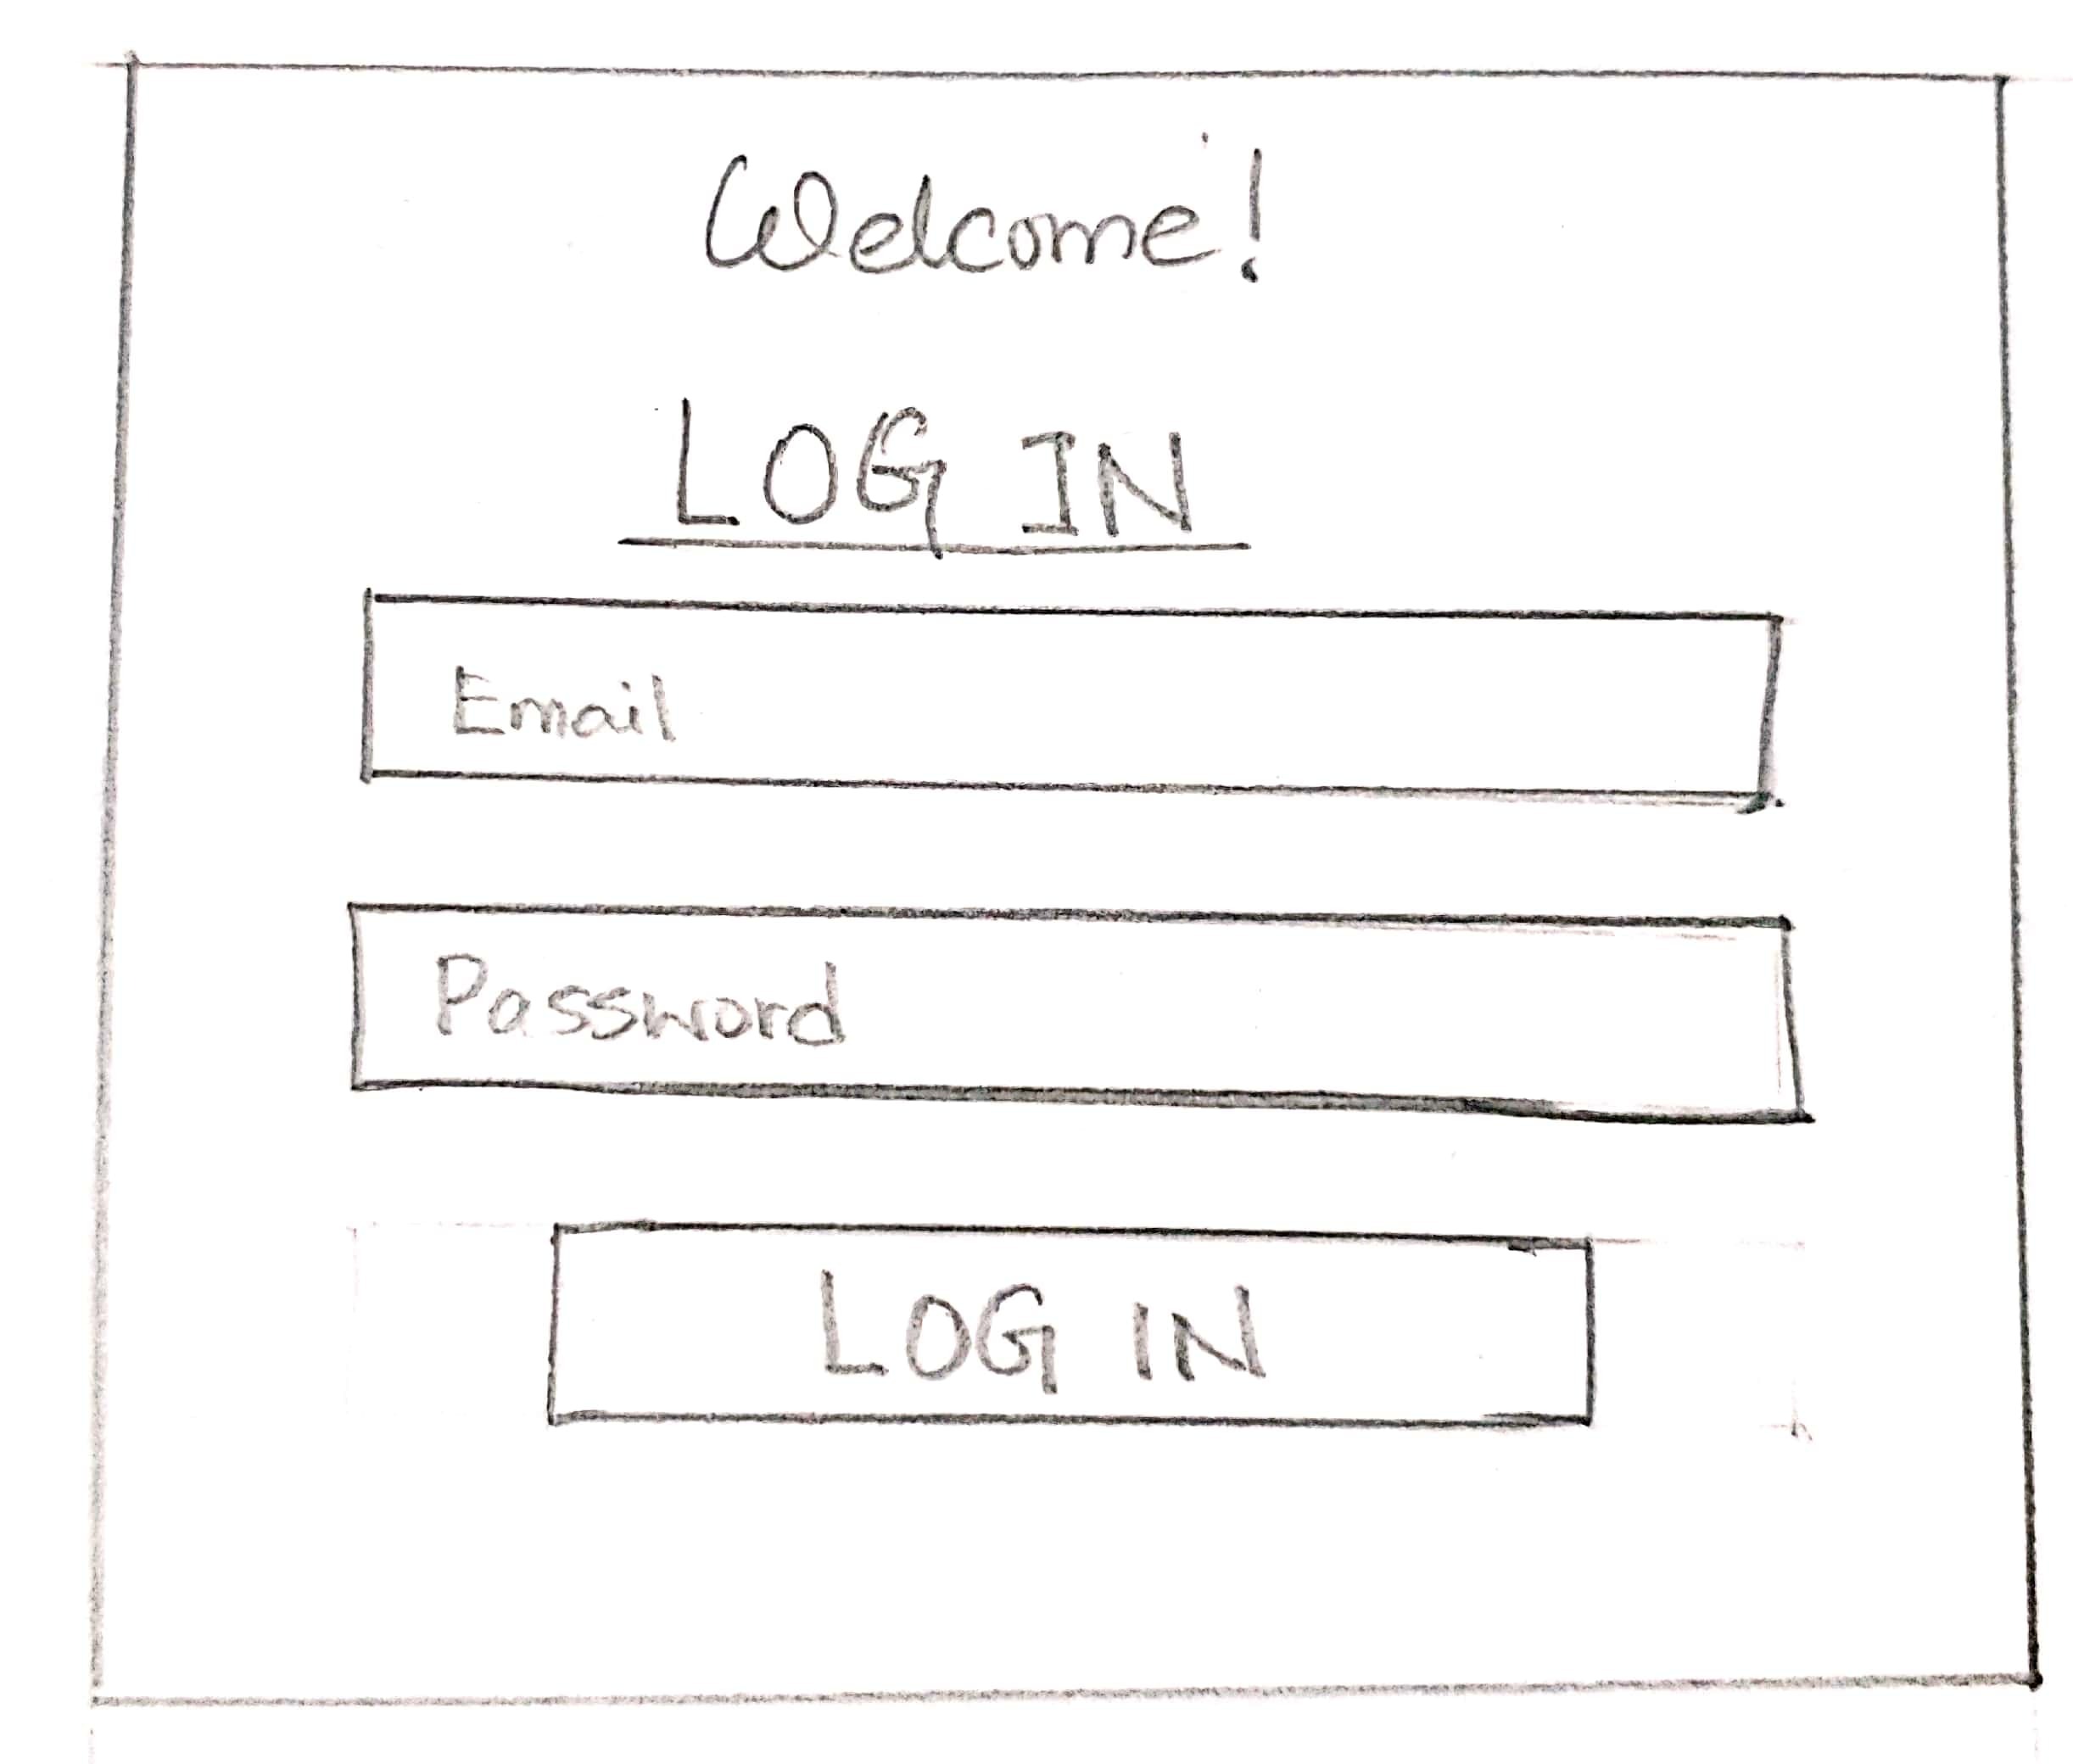 Welcome!
LOG IN
Email
Password
LOG IN